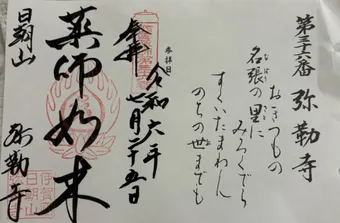 第三十六番 弥勒寺
おきつもの
名張の里に
みろくでら
すくいたまわん
のちの世までも
参拝日
令和六年
七月二十五日
奉拝
薬師如来
日朝山 弥勒寺